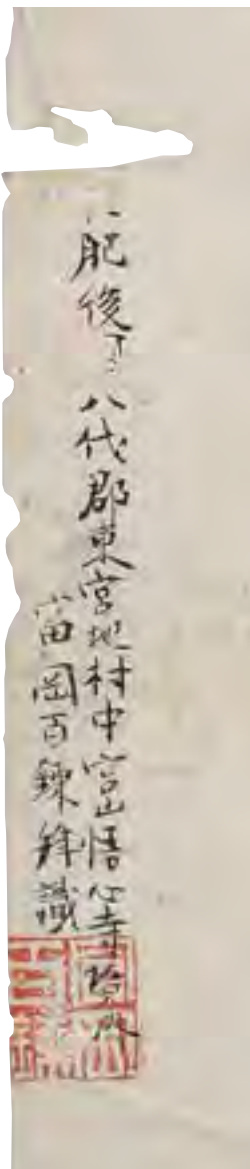 肥後八代郡東宮地村中宮山悟心寺
富岡百錬拜識